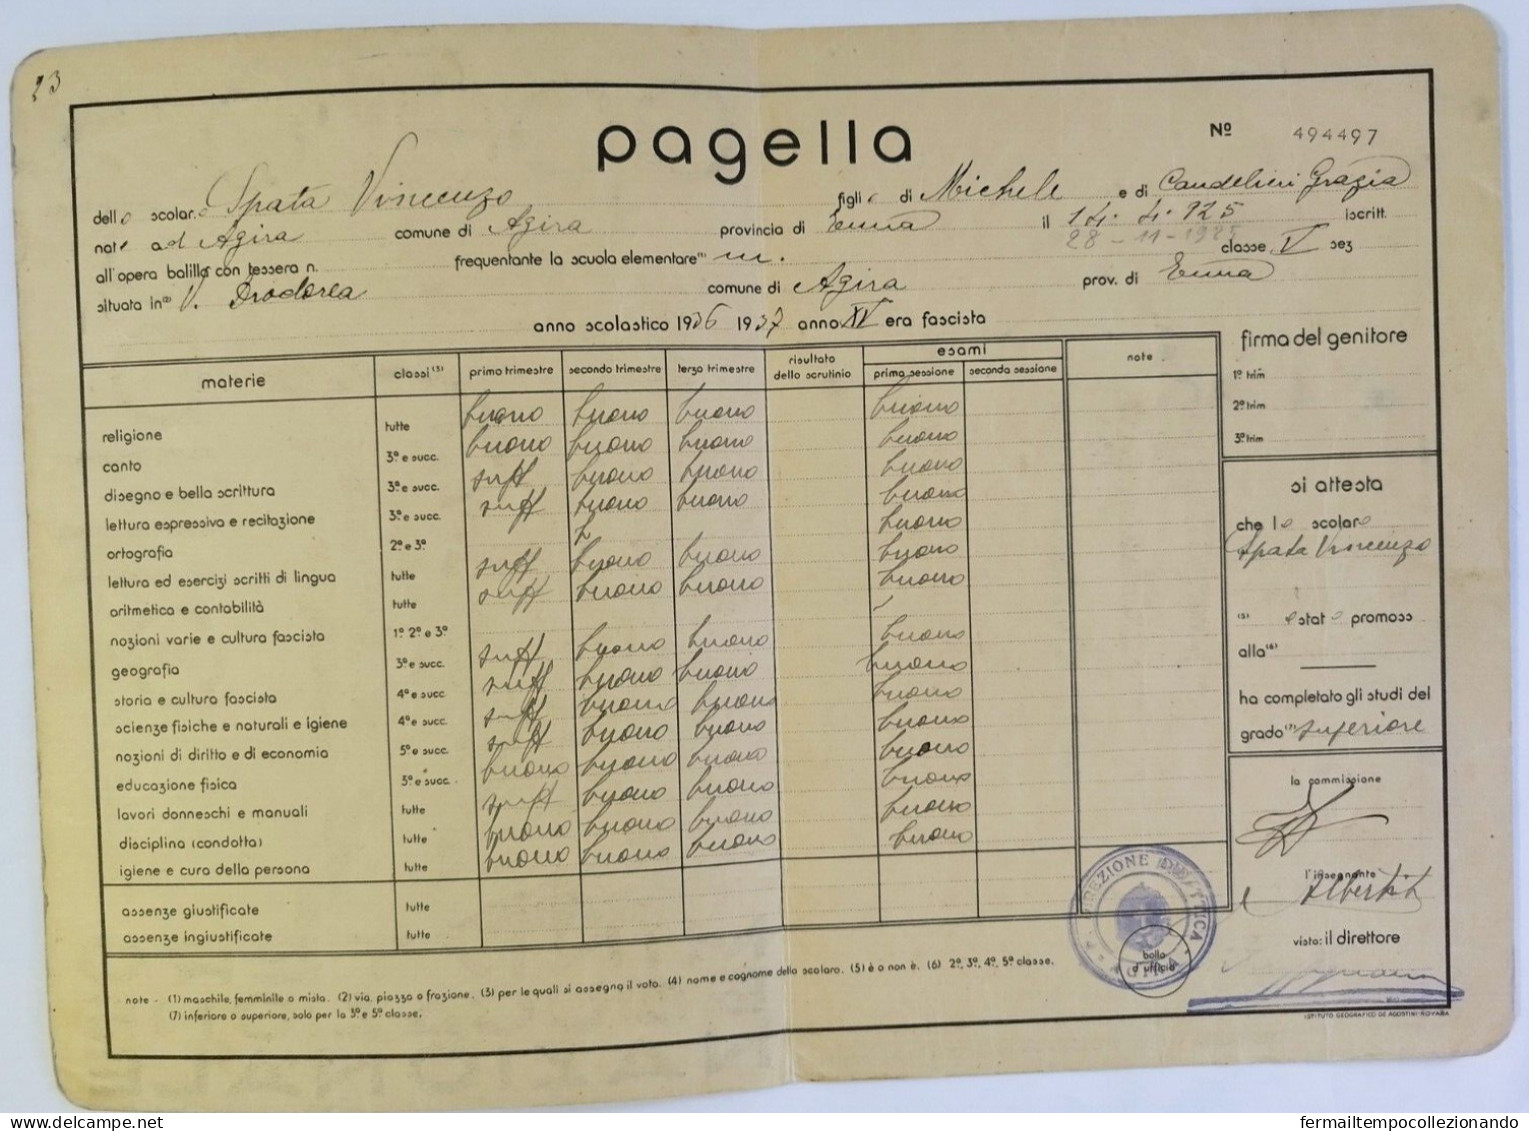 23
pagella
Nº 494497
dello scolaro Spata Vincenzo figlio di Michele e di Candelieri Grazia
nato ad Agira comune di Agira provincia di Enna il 14. 4. 925 iscritt.
28-11-1925
all'opera balilla con tessera n. frequentante la scuola elementare (1) m. classe V sez
situata in (2) V. comune di Agira prov. di Enna
anno scolastico 1936 1937 anno XV era fascista
materie classi (3) primo trimestre secondo trimestre terzo trimestre risultato dello scrutinio esami prima sessione seconda sessione note
religione tutte buono buono buono buono
canto 3ª e succ. buono buono buono buono
disegno e bella scrittura 3ª e succ. suff buono buono buono
lettura espressiva e recitazione 3ª e succ. suff buono buono buono
ortografia 2ª e 3ª buono
lettura ed esercizi scritti di lingua tutte suff buono buono buono
aritmetica e contabilità tutte suff buono buono buono
nozioni varie e cultura fascista 1ª 2ª e 3ª
geografia 3ª e succ. suff buono buono buono
storia e cultura fascista 4ª e succ. suff buono buono buono
scienze fisiche e naturali e igiene 4ª e succ. suff buono buono buono
nozioni di diritto e di economia 5ª e succ. suff buono buono buono
educazione fisica 3ª e succ. buono buono buono buono
lavori donneschi e manuali tutte suff buono buono buono
disciplina (condotta) tutte buono buono buono buono
igiene e cura della persona tutte buono buono buono buono
assenze giustificate tutte
assenze ingiustificate tutte
firma del genitore
1º trim
2º trim
3º trim
si attesta
che lo scolaro
Spata Vincenzo
(5) è stato promoss
alla (6)
ha completato gli studi del
grado (7) superiore
la commissione
l'insegnante
visto: il direttore
DIREZIONE DIDATTICA
bollo
d'ufficio
note - (1) maschile, femminile o mista. (2) via, piazza o frazione. (3) per le quali si assegna il voto. (4) nome e cognome dello scolaro. (5) è o non è. (6) 2ª, 3ª, 4ª, 5ª classe.
(7) inferiore o superiore, solo per la 3ª e 5ª classe.
ISTITUTO GEOGRAFICO DE AGOSTINI-NOVARA
www.delcampe.net
fermailtempocollezionando